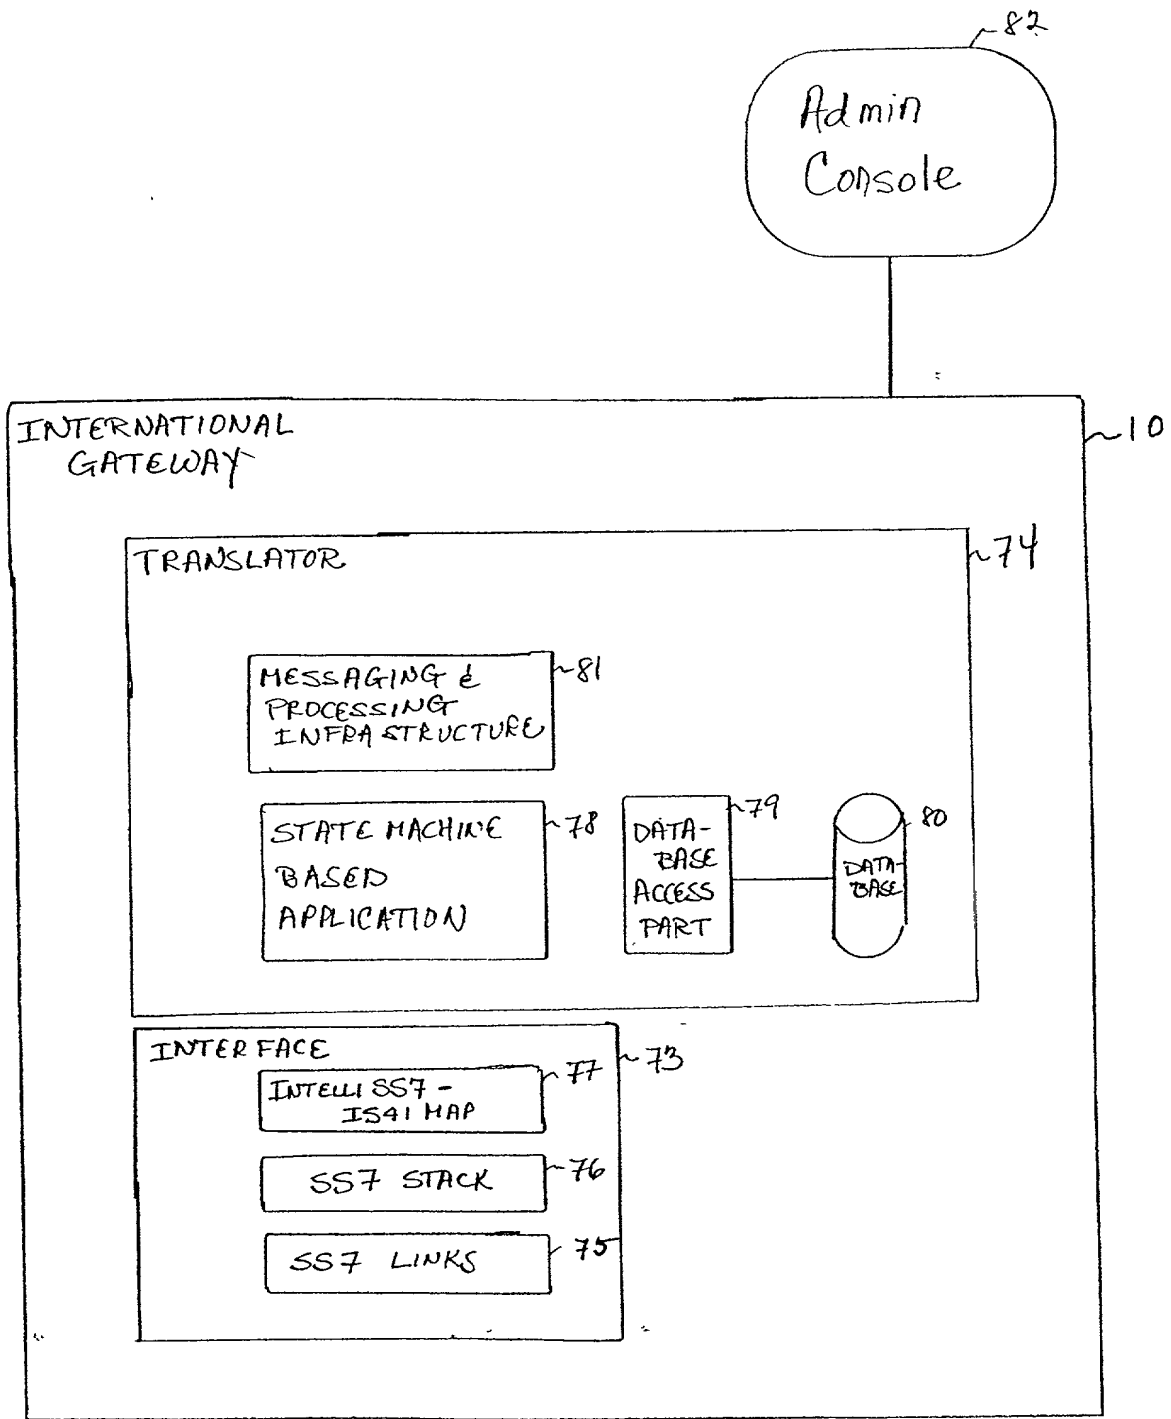 82
Admin
Console
INTERNATIONAL
GATEWAY
10
TRANSLATOR
74
MESSAGING &
PROCESSING
INFRASTRUCTURE
81
STATE MACHINE
BASED
APPLICATION
78
DATA-
BASE
ACCESS
PART
79
DATA-
BASE
80
INTERFACE
73
INTELLISS7-
IS41 MAP
77
SS7 STACK
76
SS7 LINKS
75